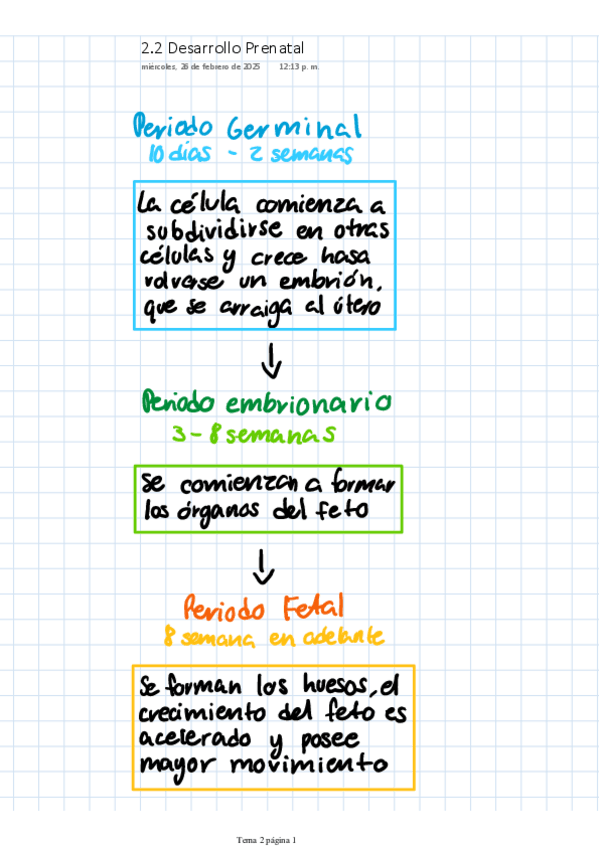 2.2 Desarrollo Prenatal
miércoles, 26 de febrero de 2025 12:13 p. m.
Periodo Germinal
10 días - 2 semanas
La célula comienza a
subdividirse en otras
células y crece hasa
volverse un embrión,
que se arraiga al útero
Periodo embrionario
3 - 8 semanas
Se comienzan a formar
los órganos del feto
Periodo Fetal
8 semana en adelante
Se forman los huesos, el
crecimiento del feto es
acelerado y posee
mayor movimiento
Tema 2 página 1